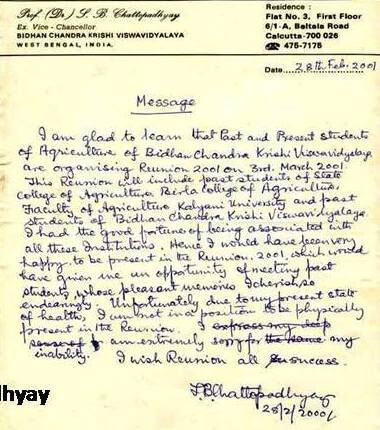 Prof. (Dr.) S. B. Chattopadhyay
Ex. Vice - Chancellor
BIDHAN CHANDRA KRISHI VISWAVIDYALAYA
WEST BENGAL, INDIA.
Residence :
Flat No. 3, First Floor
6/1-A, Beltala Road
Calcutta-700 026
☎ 475-7175
Date 28th Feb. 2001
Message
I am glad to learn that Past and Present students
of Agriculture of Bidhan Chandra Krishi Viswavidyalaya
are organising Reunion 2001 on 3rd. March 2001.
This Reunion will include past students of State
College of Agriculture Birla College of Agriculture,
Faculty of Agriculture Kalyani University and past
students of Bidhan Chandra Krishi Viswavidyalaya
I had the good fortune of being associated with
all these Institutions. Hence I would have been very
happy to be present in the Reunion. 2001, which would
have given me an opportunity of meeting past
students, whose pleasant memories I cherish so
endearingly. Unfortunately due to my present state
of health, I am not in a position to be physically
present in the Reunion. I express my deep
am extremely sorry for the same my
inability.
I wish Reunion all success.
S.B. Chattopadhyay
28/2/2000/
dhyay